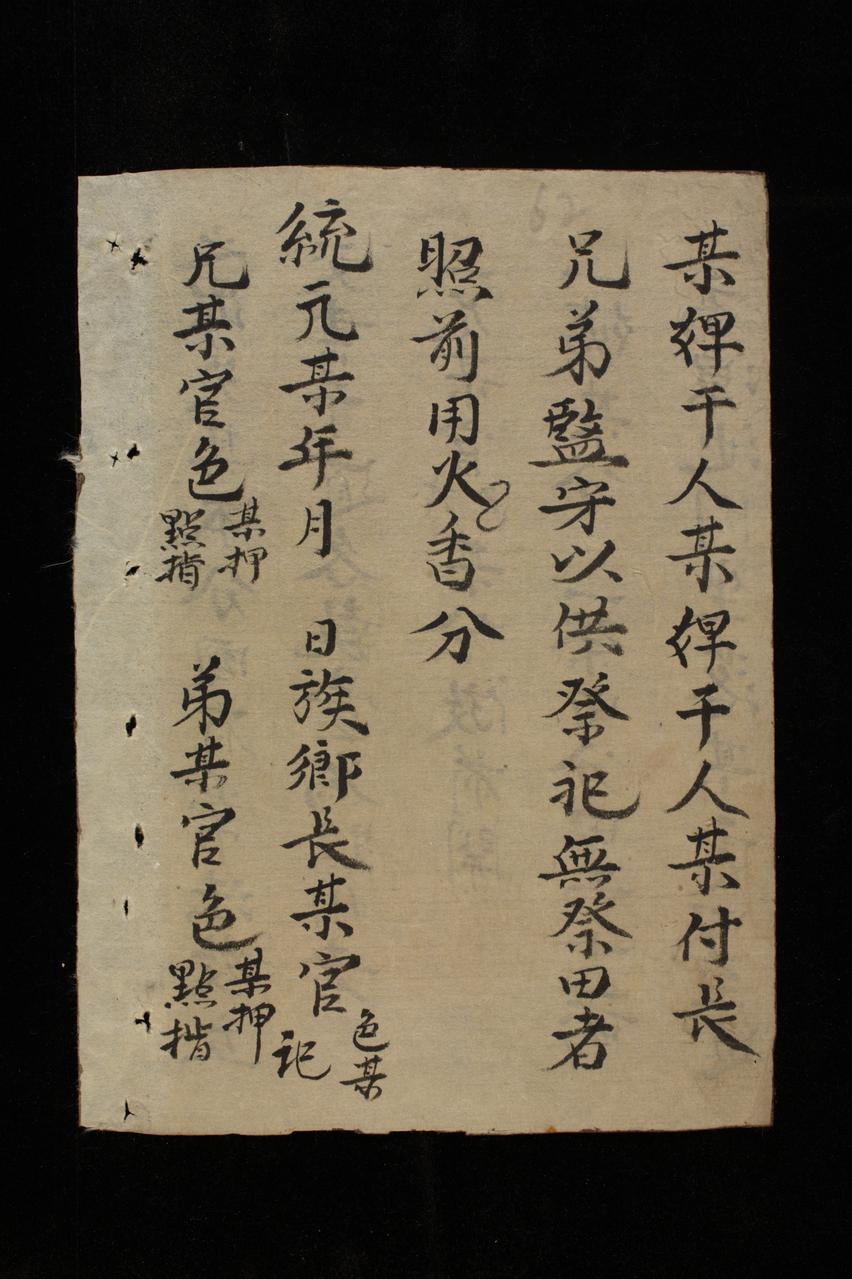 某婢干人某婢干人某付長
兄弟監守以供祭祀無祭田者
照前用火香分
統元某年月 日族鄉長某官色某記
兄某官色某押點指 弟某官色某押點指